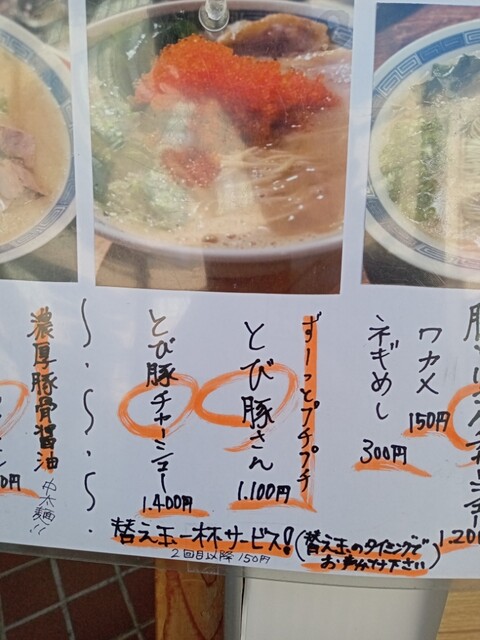 ワカメ
150円
ネギめし
300円
ずーっとプチプチ
とび豚さん
1.100円
とび豚チャーシュー
1.400円
濃厚豚骨醤油
中太麺!!
替え玉一杯サービス!
(替え玉のタイミングで
お声がけ下さい)
2回目以降150円